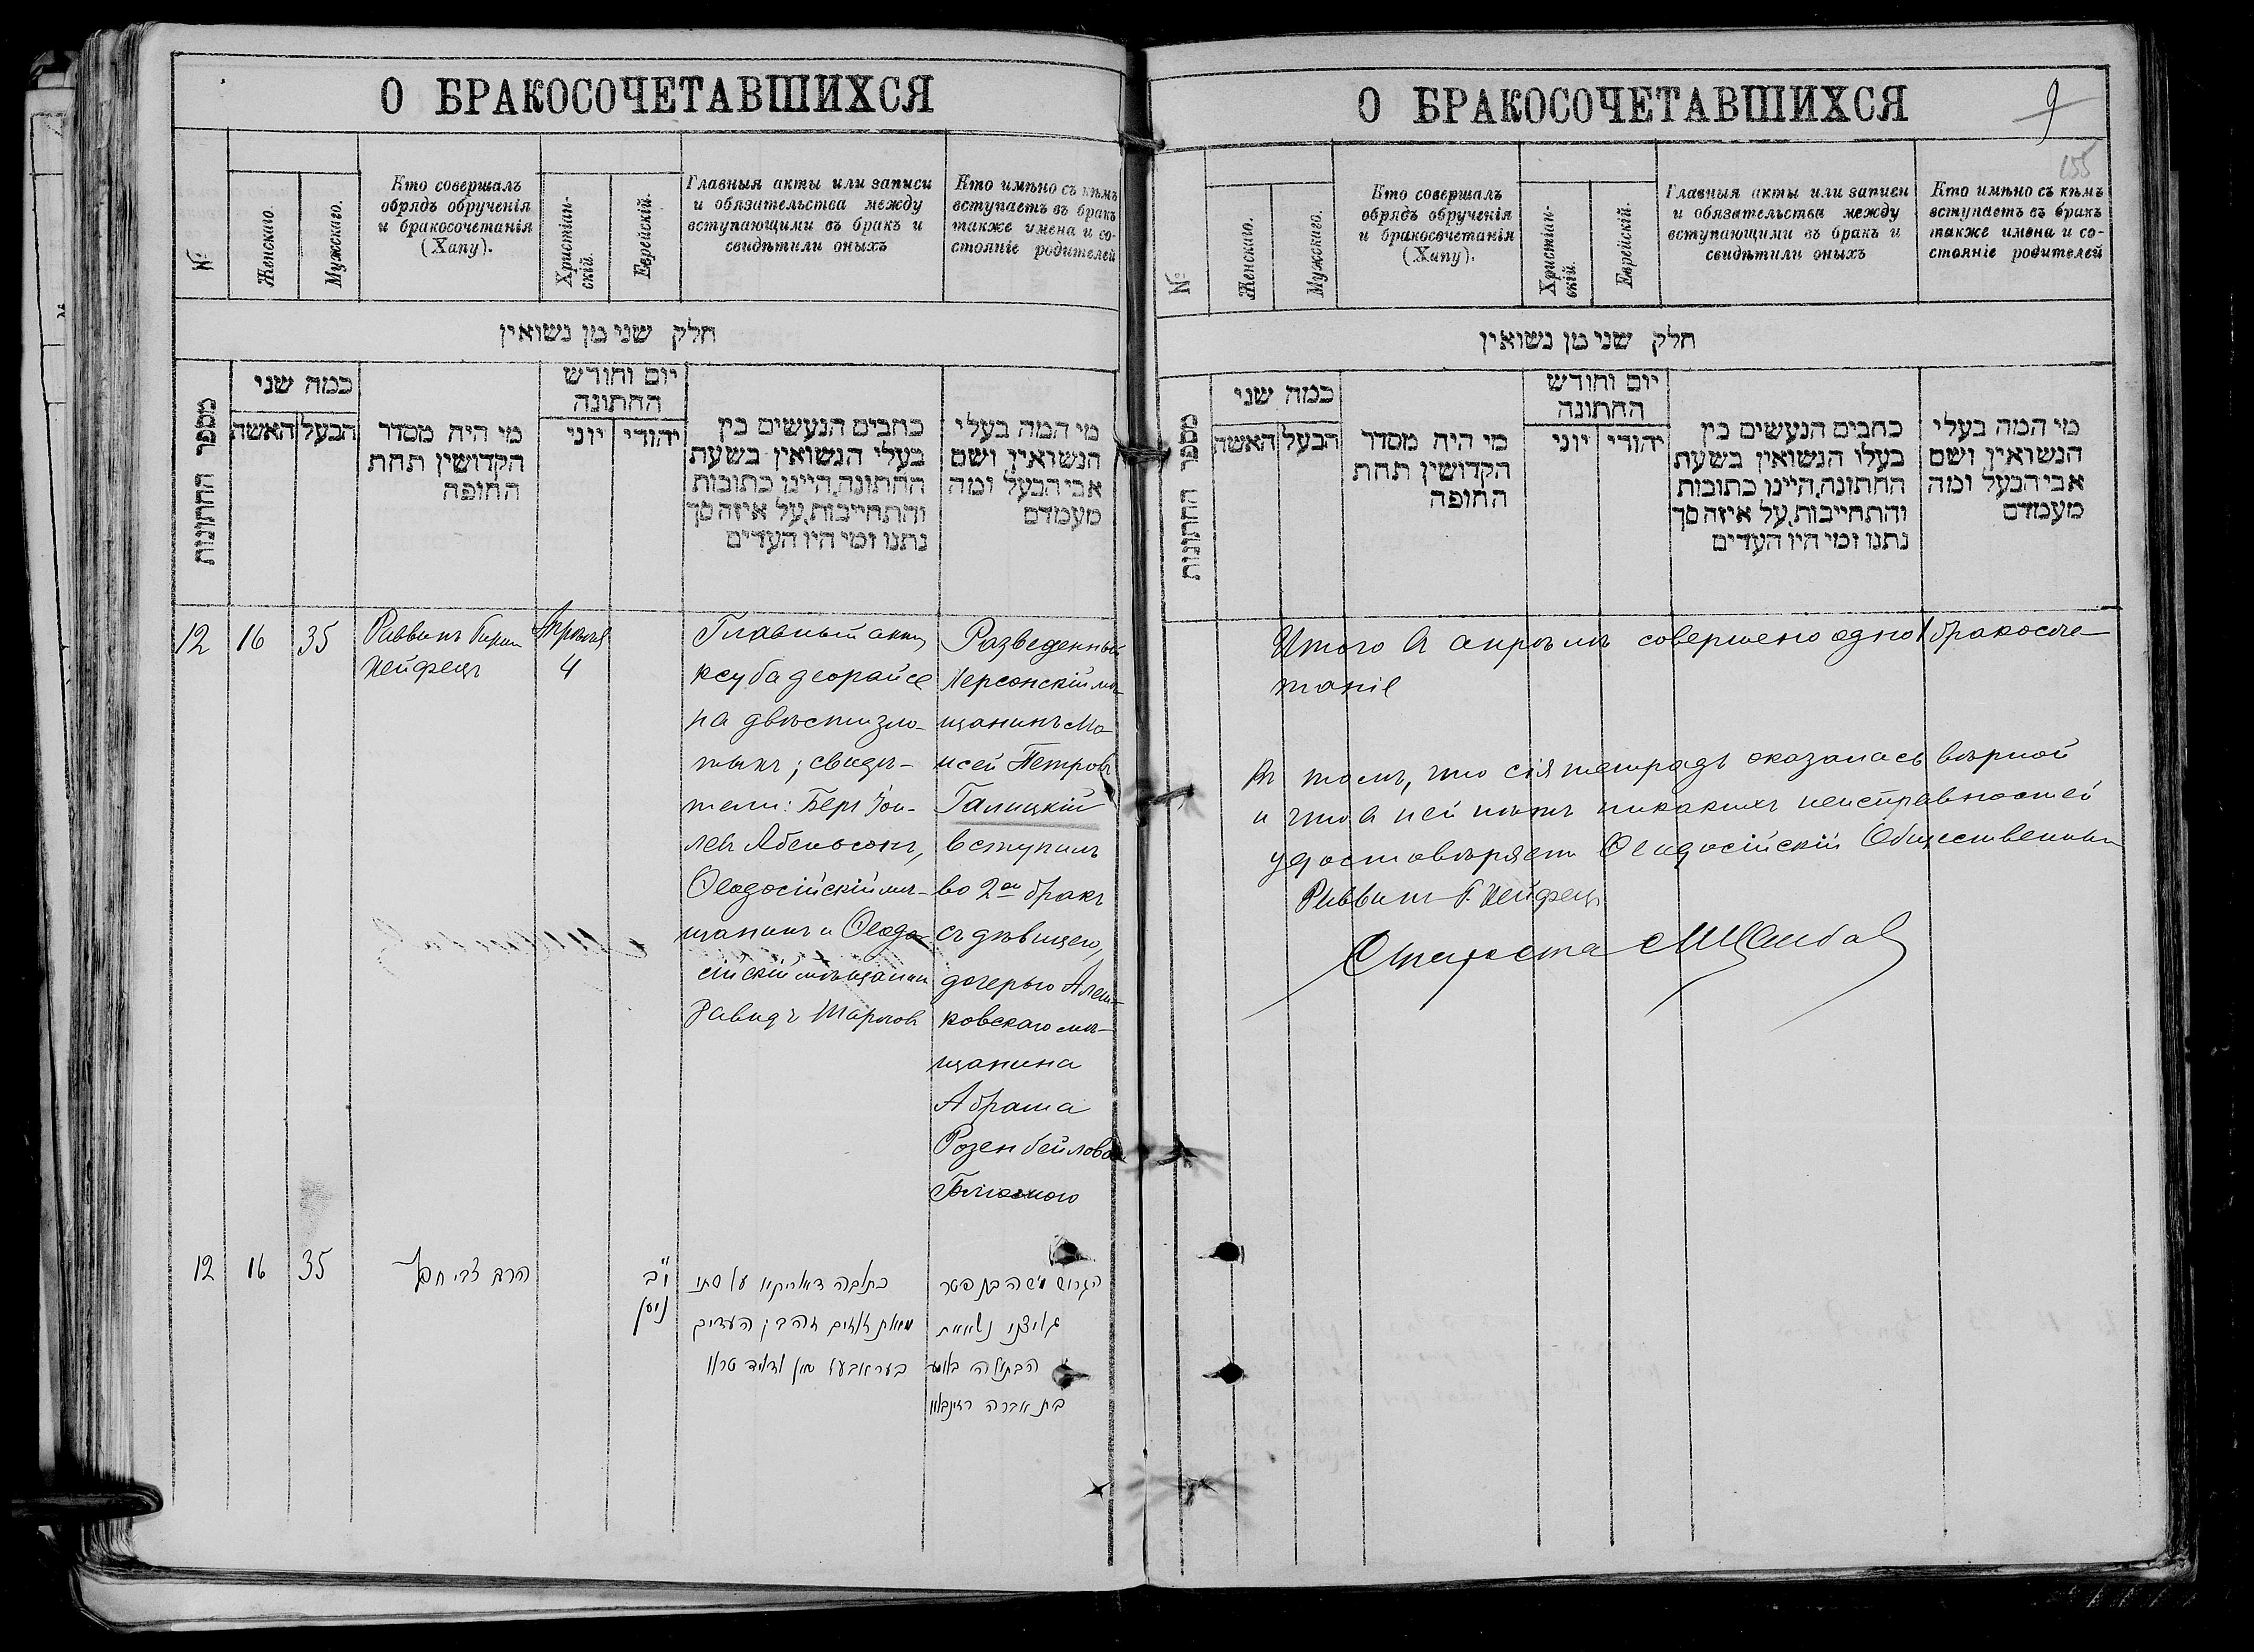 О БРАКОСОЧЕТАВШИХСЯ
№
Женскаго.
Мужскаго.
Кто совершалъ
обрядъ обрученія
и бракосочетанія
(Хапу).
Христіан-
скій.
Еврейскій.
Главныя акты или записи
и обязательства между
вступающими въ бракъ и
свидѣтили оныхъ
Кто имѣно съ кѣмъ
вступаетъ въ бракъ
также имена и со-
стояніе родителей
חלק שני מן נשואין
מספר החתונות
כמה שני
האשה
הבעל
מי היה מסדר
הקדושין תחת
החופה
יום וחודש
החתונה
יוני
יהודי
כתבים הנעשים בין
בעלי הנשואין בשעת
החתונה, היינו כתובות
והתחייבות, על איזה סך
נתנו ומי היו העדים
מי המה בעלי
הנשואין ושם
אבי הבעל ומה
מעמדם
12
16
35
Раввинъ
Хейфецъ
Апрѣля
4
Главный актъ
ксуба деорайсе
на двѣсти зло-
тыхъ; свидѣ-
тели: Беръ
левъ Абельсонъ,
Ѳеодосійскій мѣ-
щанинъ и Ѳеодо
сійскій мѣщанин
Давидъ
Разведенный
Херсонскій мѣ-
щанинъ Мо
исей Петровъ
Галицкій
вступилъ
во 2ой бракъ
съ дѣвицею,
дочерью Алеш-
ковскаго мѣ-
щанина
Абрама
Розенбейлова
12
16
35
הרב צבי חפץ
י"ב
ניסן
כתובה דארייתא על סתו
מאת זוזים והעדים
הגרוש משה בן פטר
גליצקי נשאת
הבתולה
בת אברה
О БРАКОСОЧЕТАВШИХСЯ
9
155
№
Женскаго.
Мужскаго.
Кто совершалъ
обрядъ обрученія
и бракосочетанія
(Хапу).
Христіан-
скій.
Еврейскій.
Главныя акты или записи
и обязательства между
вступающими въ бракъ и
свидѣтили оныхъ
Кто имѣно съ кѣмъ
вступаетъ въ бракъ
также имена и со-
стояніе родителей
חלק שני מן נשואין
מספר החתונות
כמה שני
האשה
הבעל
מי היה מסדר
הקדושין תחת
החופה
יום וחודש
החתונה
יוני
יהודי
כתבים הנעשים בין
בעלי הנשואין בשעת
החתונה, היינו כתובות
והתחייבות, על איזה סך
נתנו ומי היו העדים
מי המה בעלי
הנשואין ושם
אבי הבעל ומה
מעמדם
Итого въ апрѣлѣ совершено одно 1 бракосоче-
таніе
Въ томъ, что сія тетрадь оказалась вѣрной
и что въ ней нѣтъ никакихъ неисправностей
удостовѣряетъ Ѳеодосійскій Общественный
Раввинъ Б. Хейфецъ
Староста